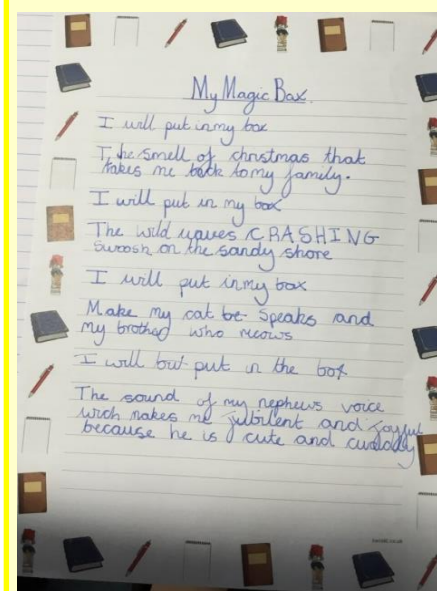 My Magic Box.
I will put in my box
The smell of christmas that
takes me back to my family.
I will put in my box
The wild waves CRASHING
Swoosh on the sandy shore
I will put in my box
Make my cat be Speaks and
my brother who meows
I will but put in the box
The sound of my nephews voice
wich makes me jubilent and joyful
because he is cute and cuddly